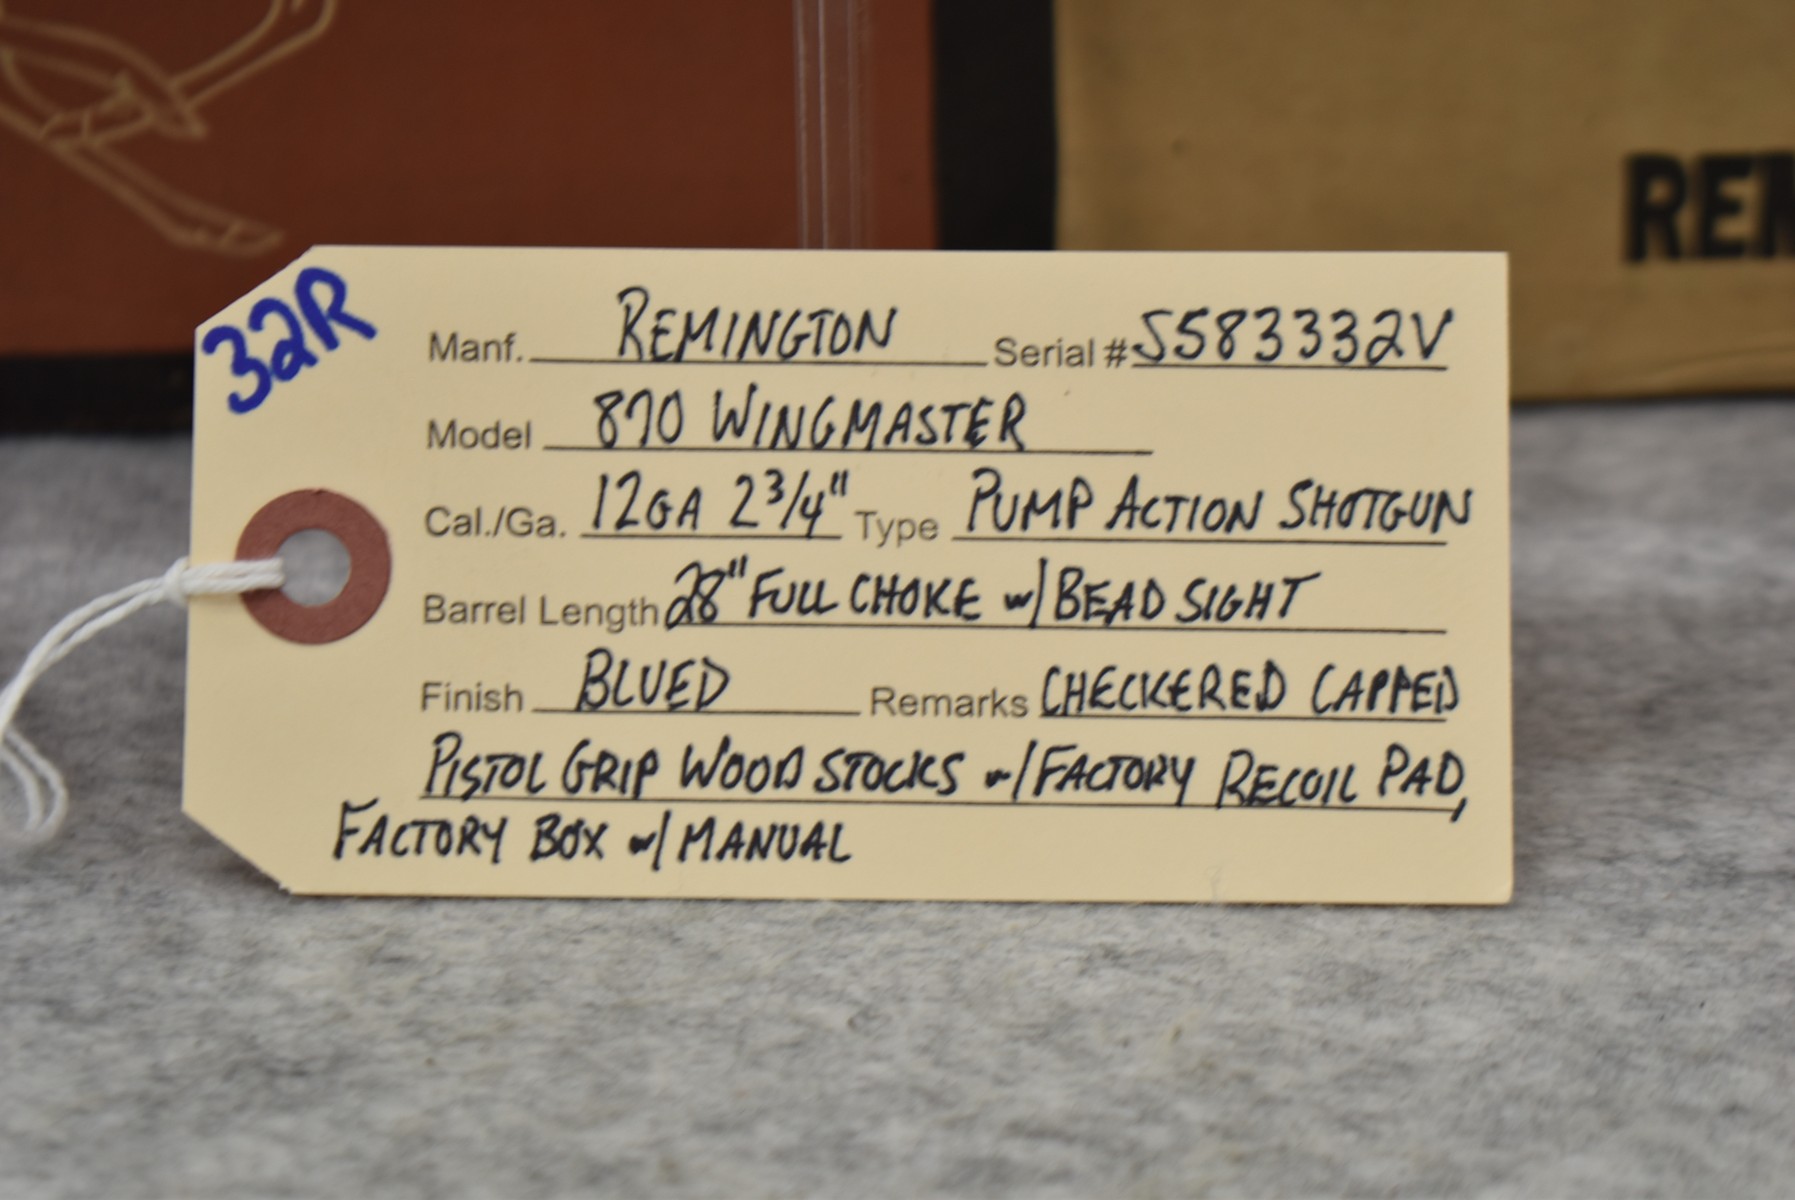 REM
32R
Manf. REMINGTON Serial # S583332V
Model 870 WINGMASTER
Cal./Ga. 12GA 2 3/4" Type PUMP ACTION SHOTGUN
Barrel Length 28" FULL CHOKE w/ BEAD SIGHT
Finish BLUED Remarks CHECKERED CAPPED
PISTOL GRIP WOOD STOCKS w/ FACTORY RECOIL PAD,
FACTORY BOX w/ MANUAL